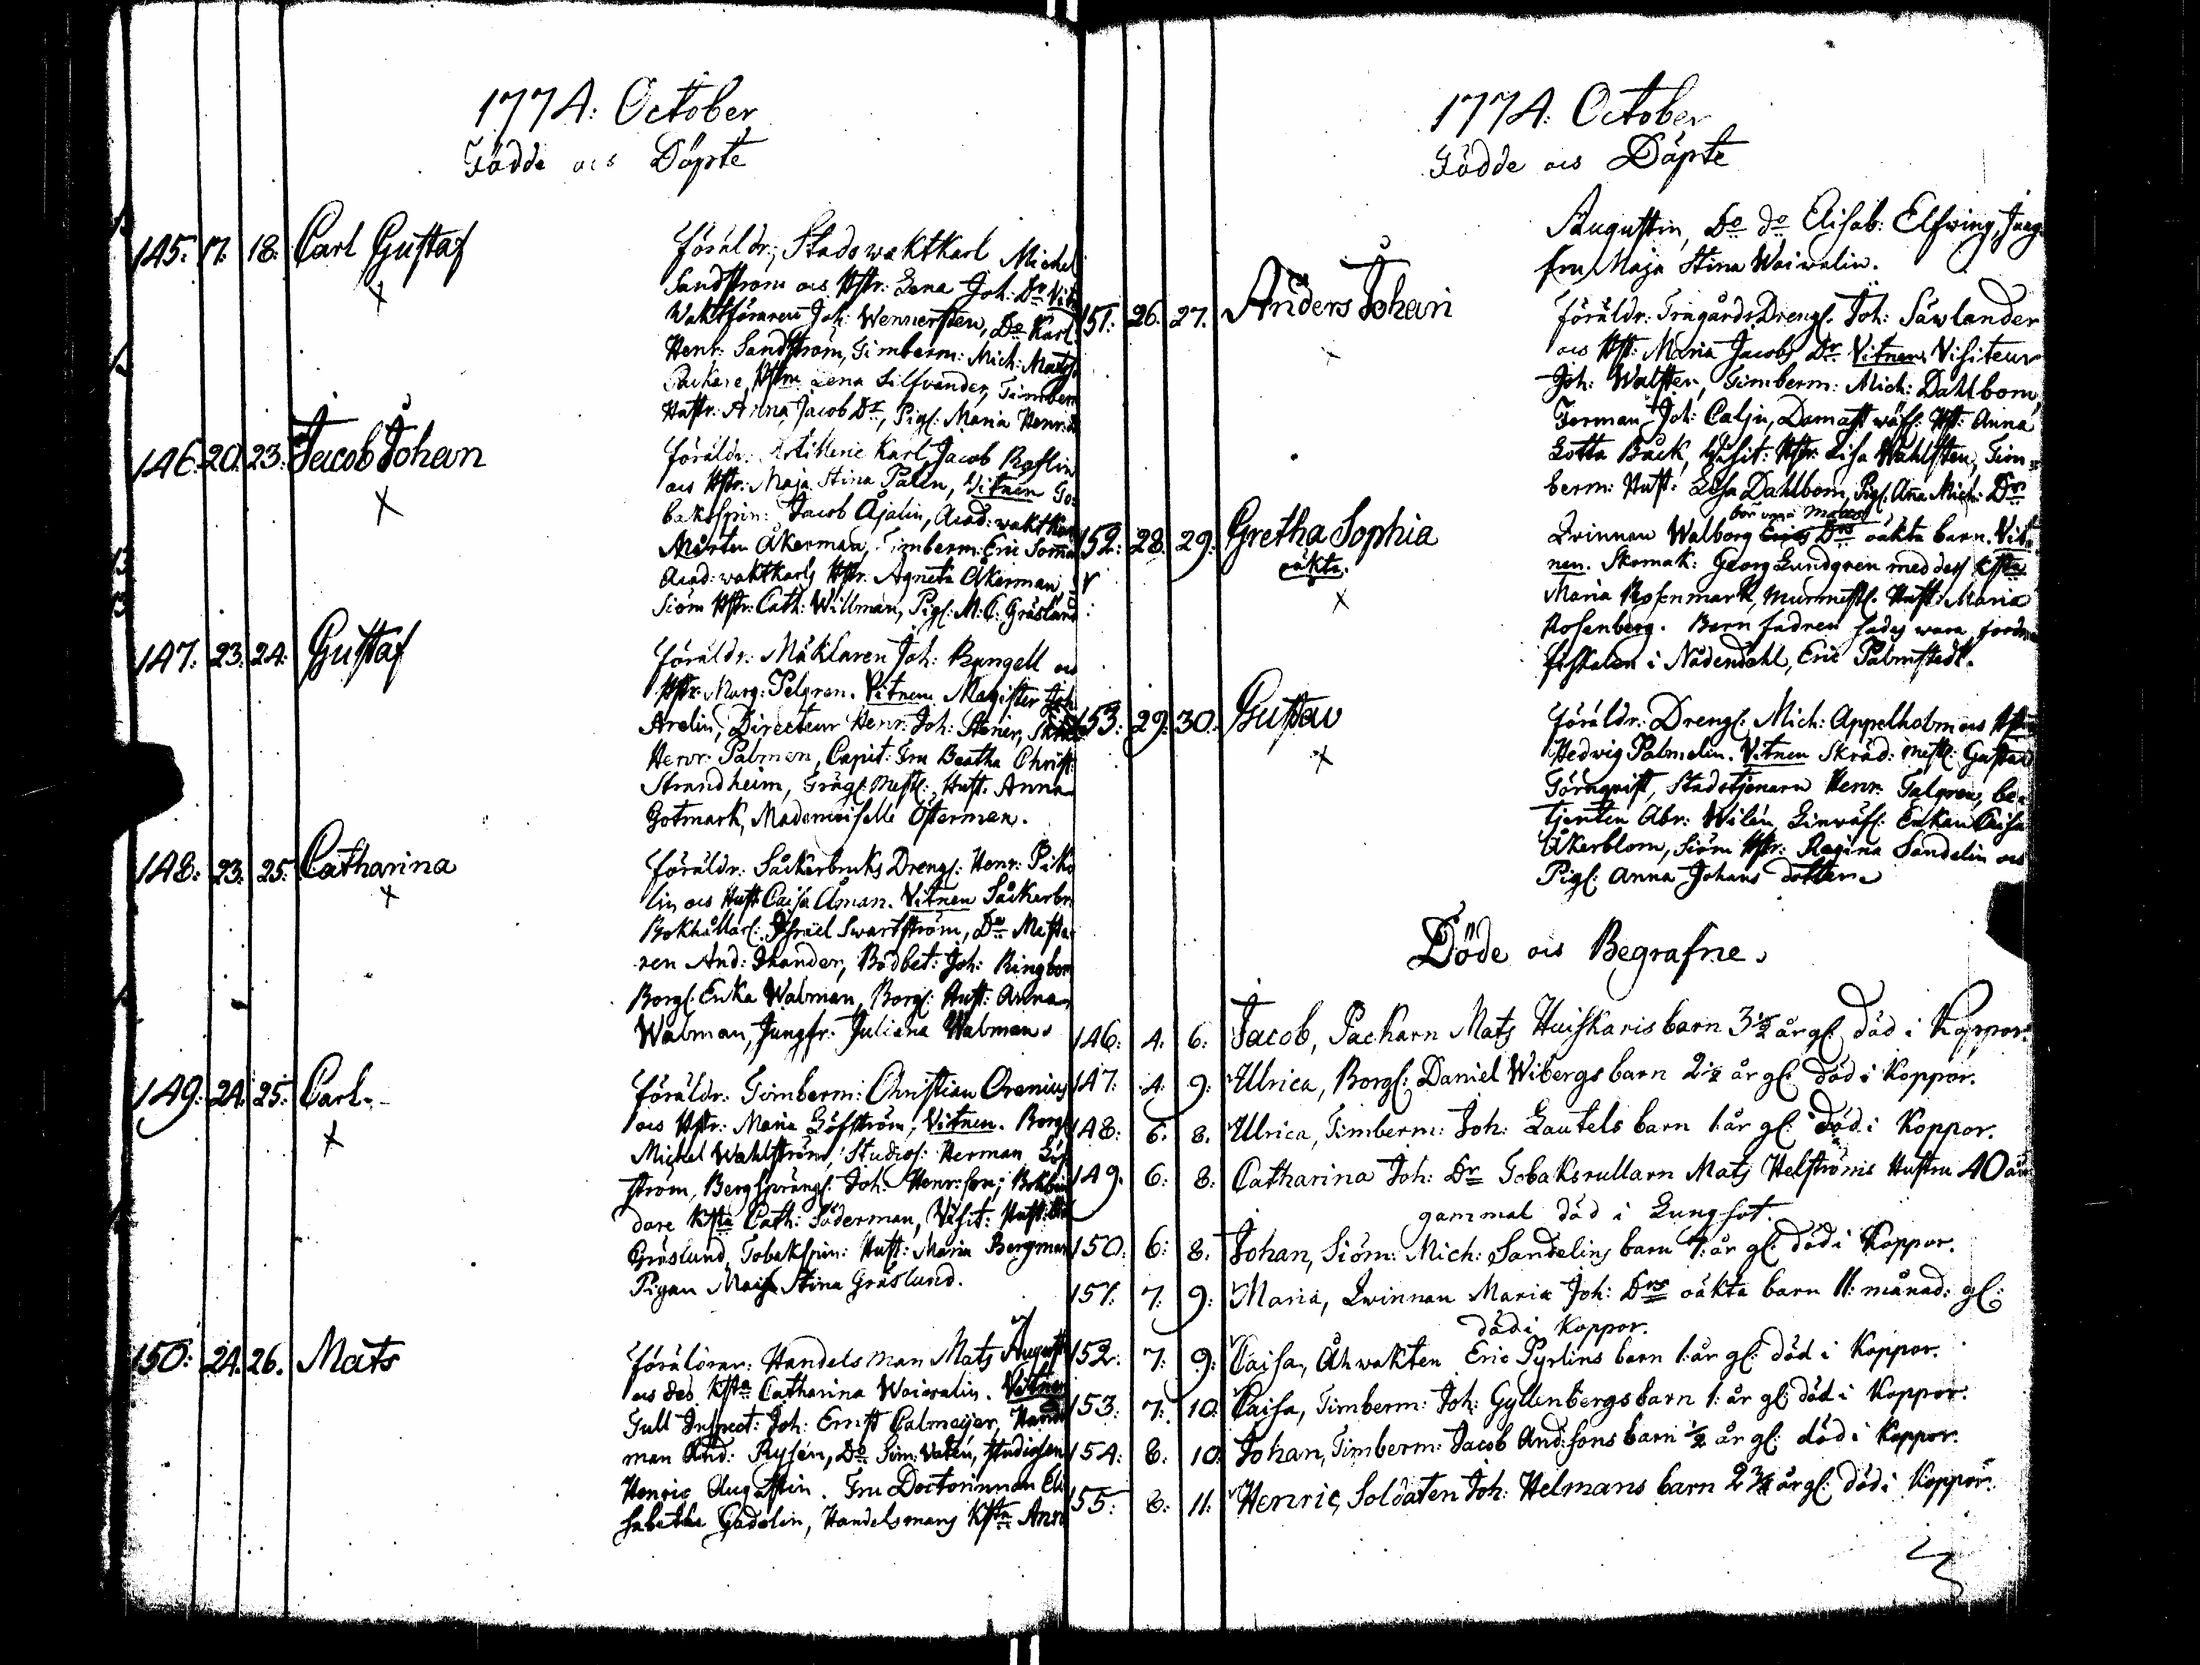 1774: October
Födde ocs Döpte
145: 17. 18: Carl Gustaf
Föräldr: Stads waktkarl Michel
Sandström ocs Hstr: Lena Joh: Dr Vitn
Waktföraren Joh: Wennersten, Do Karl
Henr: Sandström, Timberm: Mich: Mats
Packare Hstru Lena Silfvander, Timberm
Hustr: Anna Jacob Dr, Pigs: Maria Henr: D
146: 20. 23: Jacob Johan
Föräldr: Artillerie Karl Jacob Roslin
ocs Hstr: Maja Stina Palen, Vitnen To=
baksspin: Jacob Åjalin, Acad: waktkarl
Mårten Åkerman, Timberm: Eric
Acad: waktkarls Hstr: Agneta Åkerman,
Siöm Hstr: Cath: Willman, Pigs: M: C: Gräslund
147. 23. 24: Gustaf
Föräldr: Mäklaren Joh: Bungell ocs
Hstr: Marg: Pelgren. Vitnen Magister Joh
Arelin, Directeur Henr: Joh: Stenier,
Henr: Palmen, Capit: Fru Beatha Christ:
Strandheim, Trägs: Mest: Hust. Anna
Gotmark, Mademoiselle Österman.
148: 23. 25: Catharina
Föräldr: Såckerbruks Drengs: Henr: Piko
lin ocs Hust Caisa Åman. Vitnen Såckerbr
Bokhållar: Isræl Swartström, Do Mästa=
ren And: Ikonder, Bodbet: Joh: Ringbom
Borgs: Enka Walman, Borgs: Hust: Anna
Walman, Jungfr: Juliana Walman.
149: 24. 25: Carl.
Föräldr: Timberm: Christian Orenius
ocs Hstr: Maria Löfström, Vitnen. Borgs
Michel Wahlström, Studios: Herman Löf
ström, Bergspräng: Joh: Henr:son; Bokbin
dare Hsta Cath: Söderman, Visit: Hust:
Gräslund, Tobakspin: Hust: Maria Bergman
Pigan Maja Stina Gräslund.
150: 24. 26. Mats
Föräldrar: Handelsman Mats August
ocs des Hsta Catharina Waiwalin. Vitnen
Tull Inspect: Joh: Ernst Calmeijer, Hand
man And: Rysen, Do Sim: Valen, Studiosen
Henric Augustin. Fru Doctorinnan Eli
sabetha Gadolin, Handelsmans Hsta Ann
1774: October
Födde ocs Döpte
Augustin, Do do Elisab: Elfwing, Jung=
fru Maja Stina Waiwalin.
151: 26. 27. Anders Johan
Föräldr: Trägårds Drengs: Joh: Säwlander
ocs Hst: Maria Jacobs Dr Vitnen Visiteur
Joh: Walsten, Timberm: Mich: Dahlbom,
Forman Joh: Calju, Damast wäfs: Hst: Anna
Lotta Bäck, Visit: Hstr: Lisa Wahlsten, Tim=
berm: Hust: Lisa Dahlbom, Pigs: Aña Mich: Dr
152: 28. 29: Gretha Sophia
oäkta.
bör vara Mats
Qvinnan Walborg Erics Drs oäkta barn. Vit=
nen. Skomak: Georg Lundgren med dess Hsta
Maria Rosenmark, Murmest: Hust: Maria
Rosenberg. Barn fadren sades wara fordne
fiskalen i Nådendahl, Eric Palmstedt.
153: 29. 30. Gustaw
Föräldr: Drengs: Mich: Appelholm ocs Hstru
Hedwig Palmelin. Vitnen Skräd: mest: Gustav
Törnqvist, Stadstjenaren Henr: Talgren, be=
tjenten Abr: Wilén Linwäfs: Enkan Caisa
Åkerblom, Siöm Hstr: Regina Sandelin ocs
Pigs: Anna Johans dotter.
Döde ocs Begrafne.
146: 4. 6: Jacob, Packarn Mats Huiskaris barn 3 1/2 år gl. död i Koppor.
147: 4. 9: Ulrica, Borgs: Daniel Wibergs barn 2 1/2 år gl: död i Koppor.
148: 6: 8. Ulrica, Timberm: Joh: Lautels barn 1: år gl: död i Koppor.
149. 6: 8: Catharina Joh: Dr Tobaksrullarn Mats Helströms Hustru 40 år
gammal död i Lungsot.
150: 6: 8. Johan, Siöm: Mich: Sandelins barn 7: år gl: död i Koppor.
151: 7: 9: Maria, Qwinnan Maria Joh: Drs oäkta barn 11: månad: gl:
död i Koppor.
152: 7: 9: Caisa, Åhwakten Eric Pyrlins barn 1: år gl: död i Koppor.
153: 7: 10: Caisa, Timberm: Joh: Gyllenbergs barn 1: år gl: död i Koppor.
154: 8: 10 Johan, Timberm: Jacob And:sons barn 1/2 år gl: död i Koppor.
155: 8: 11: Henric, Soldaten Joh: Helmans barn 2 3/4 år gl: död i Koppor.